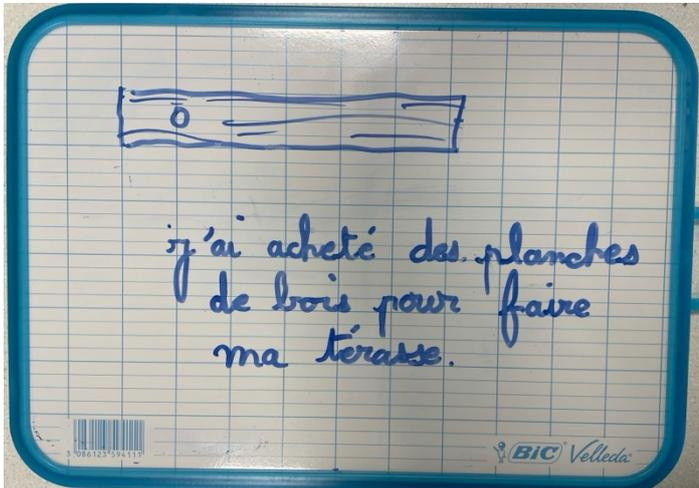 j'ai acheté des planches
de bois pour faire
ma térasse.
3 086123 594111
BiC Velleda